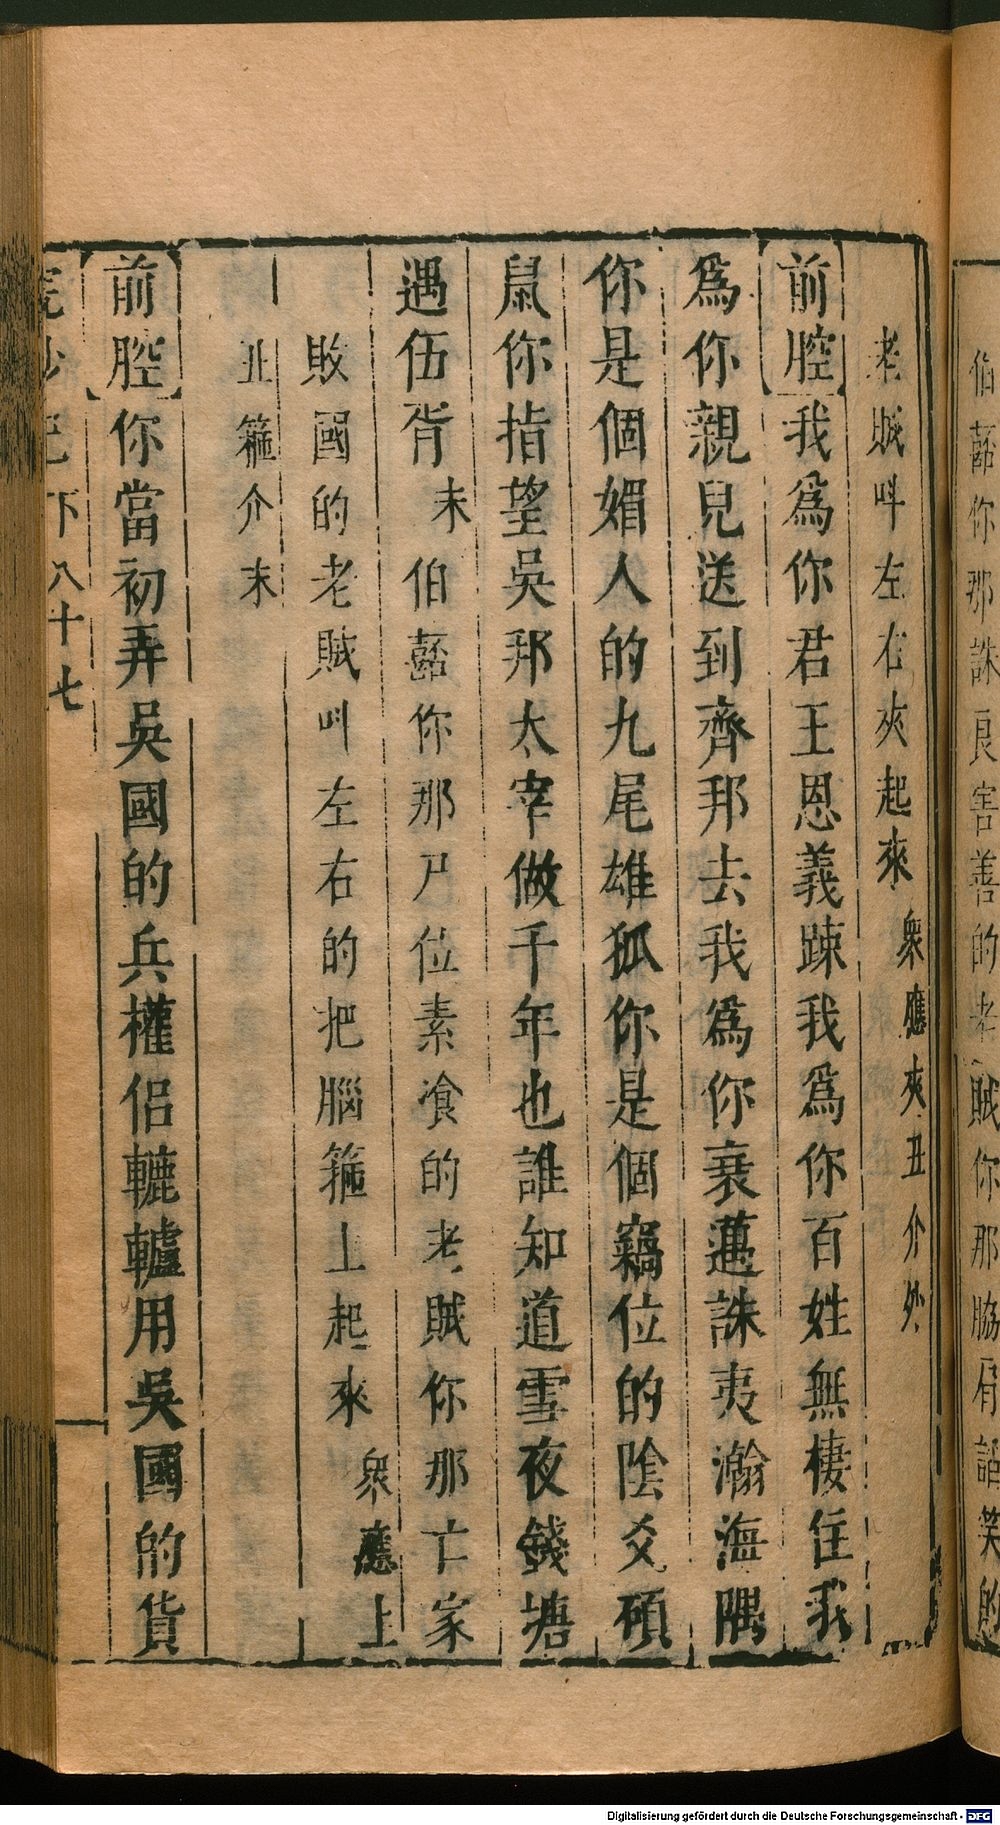 伯嚭你那誅良害善的老賊你那脇肩謟笑的
老賊叫左右夾起來衆應夾丑介外
前腔我爲你君王恩義踈我爲你百姓無棲住我
爲你親兒送到齊邦去我爲你衰邁誅夷瀚海隅
你是個媚人的九尾雄狐你是個竊位的陰爻碩
鼠你指望吳邦太宰做千年也誰知道雪夜錢塘
遇伍胥末伯嚭你那尸位素飡的老賊你那亡家
敗國的老賊叫左右的把腦箍上起來衆應上
丑箍介末
前腔你當初弄吳國的兵權侣轆轤用吳國的貨
浣紗記下八十七
Digitalisierung gefördert durch die Deutsche Forschungsgemeinschaft - DFG